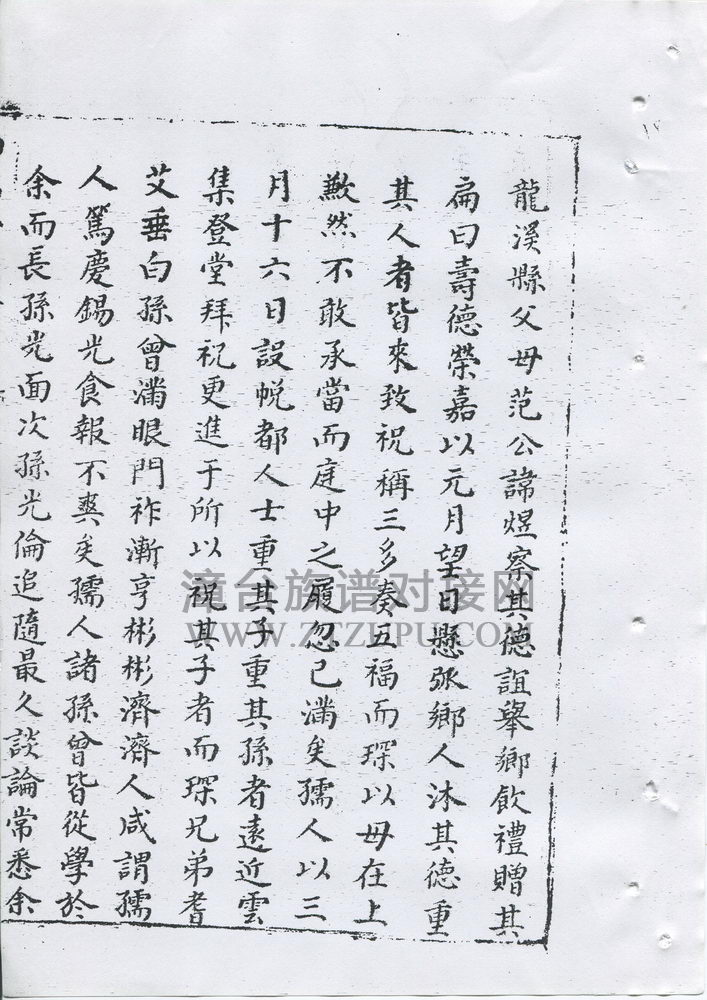 龍溪縣父母范公諱煜察其德誼舉鄉飲禮贈其
扁曰壽德榮嘉以元月望日懸張鄉人沐其德重
其人者皆來致祝稱三多奏五福而琛以母在上
歉然不敢承當而庭中之履忽已滿矣孺人以三
月十六日設帨都人士重其子重其孫者遠近雲
集登堂拜祝更進于所以祝其子者而琛兄弟耆
艾垂白孫曾滿眼門祚漸亨彬彬濟濟人咸謂孺
人篤慶錫光食報不爽矣孺人諸孫曾皆從學於
余而長孫光面次孫光倫追隨最久談論常悉余
漳台族谱对接网
WWW.ZTZUPU.COM